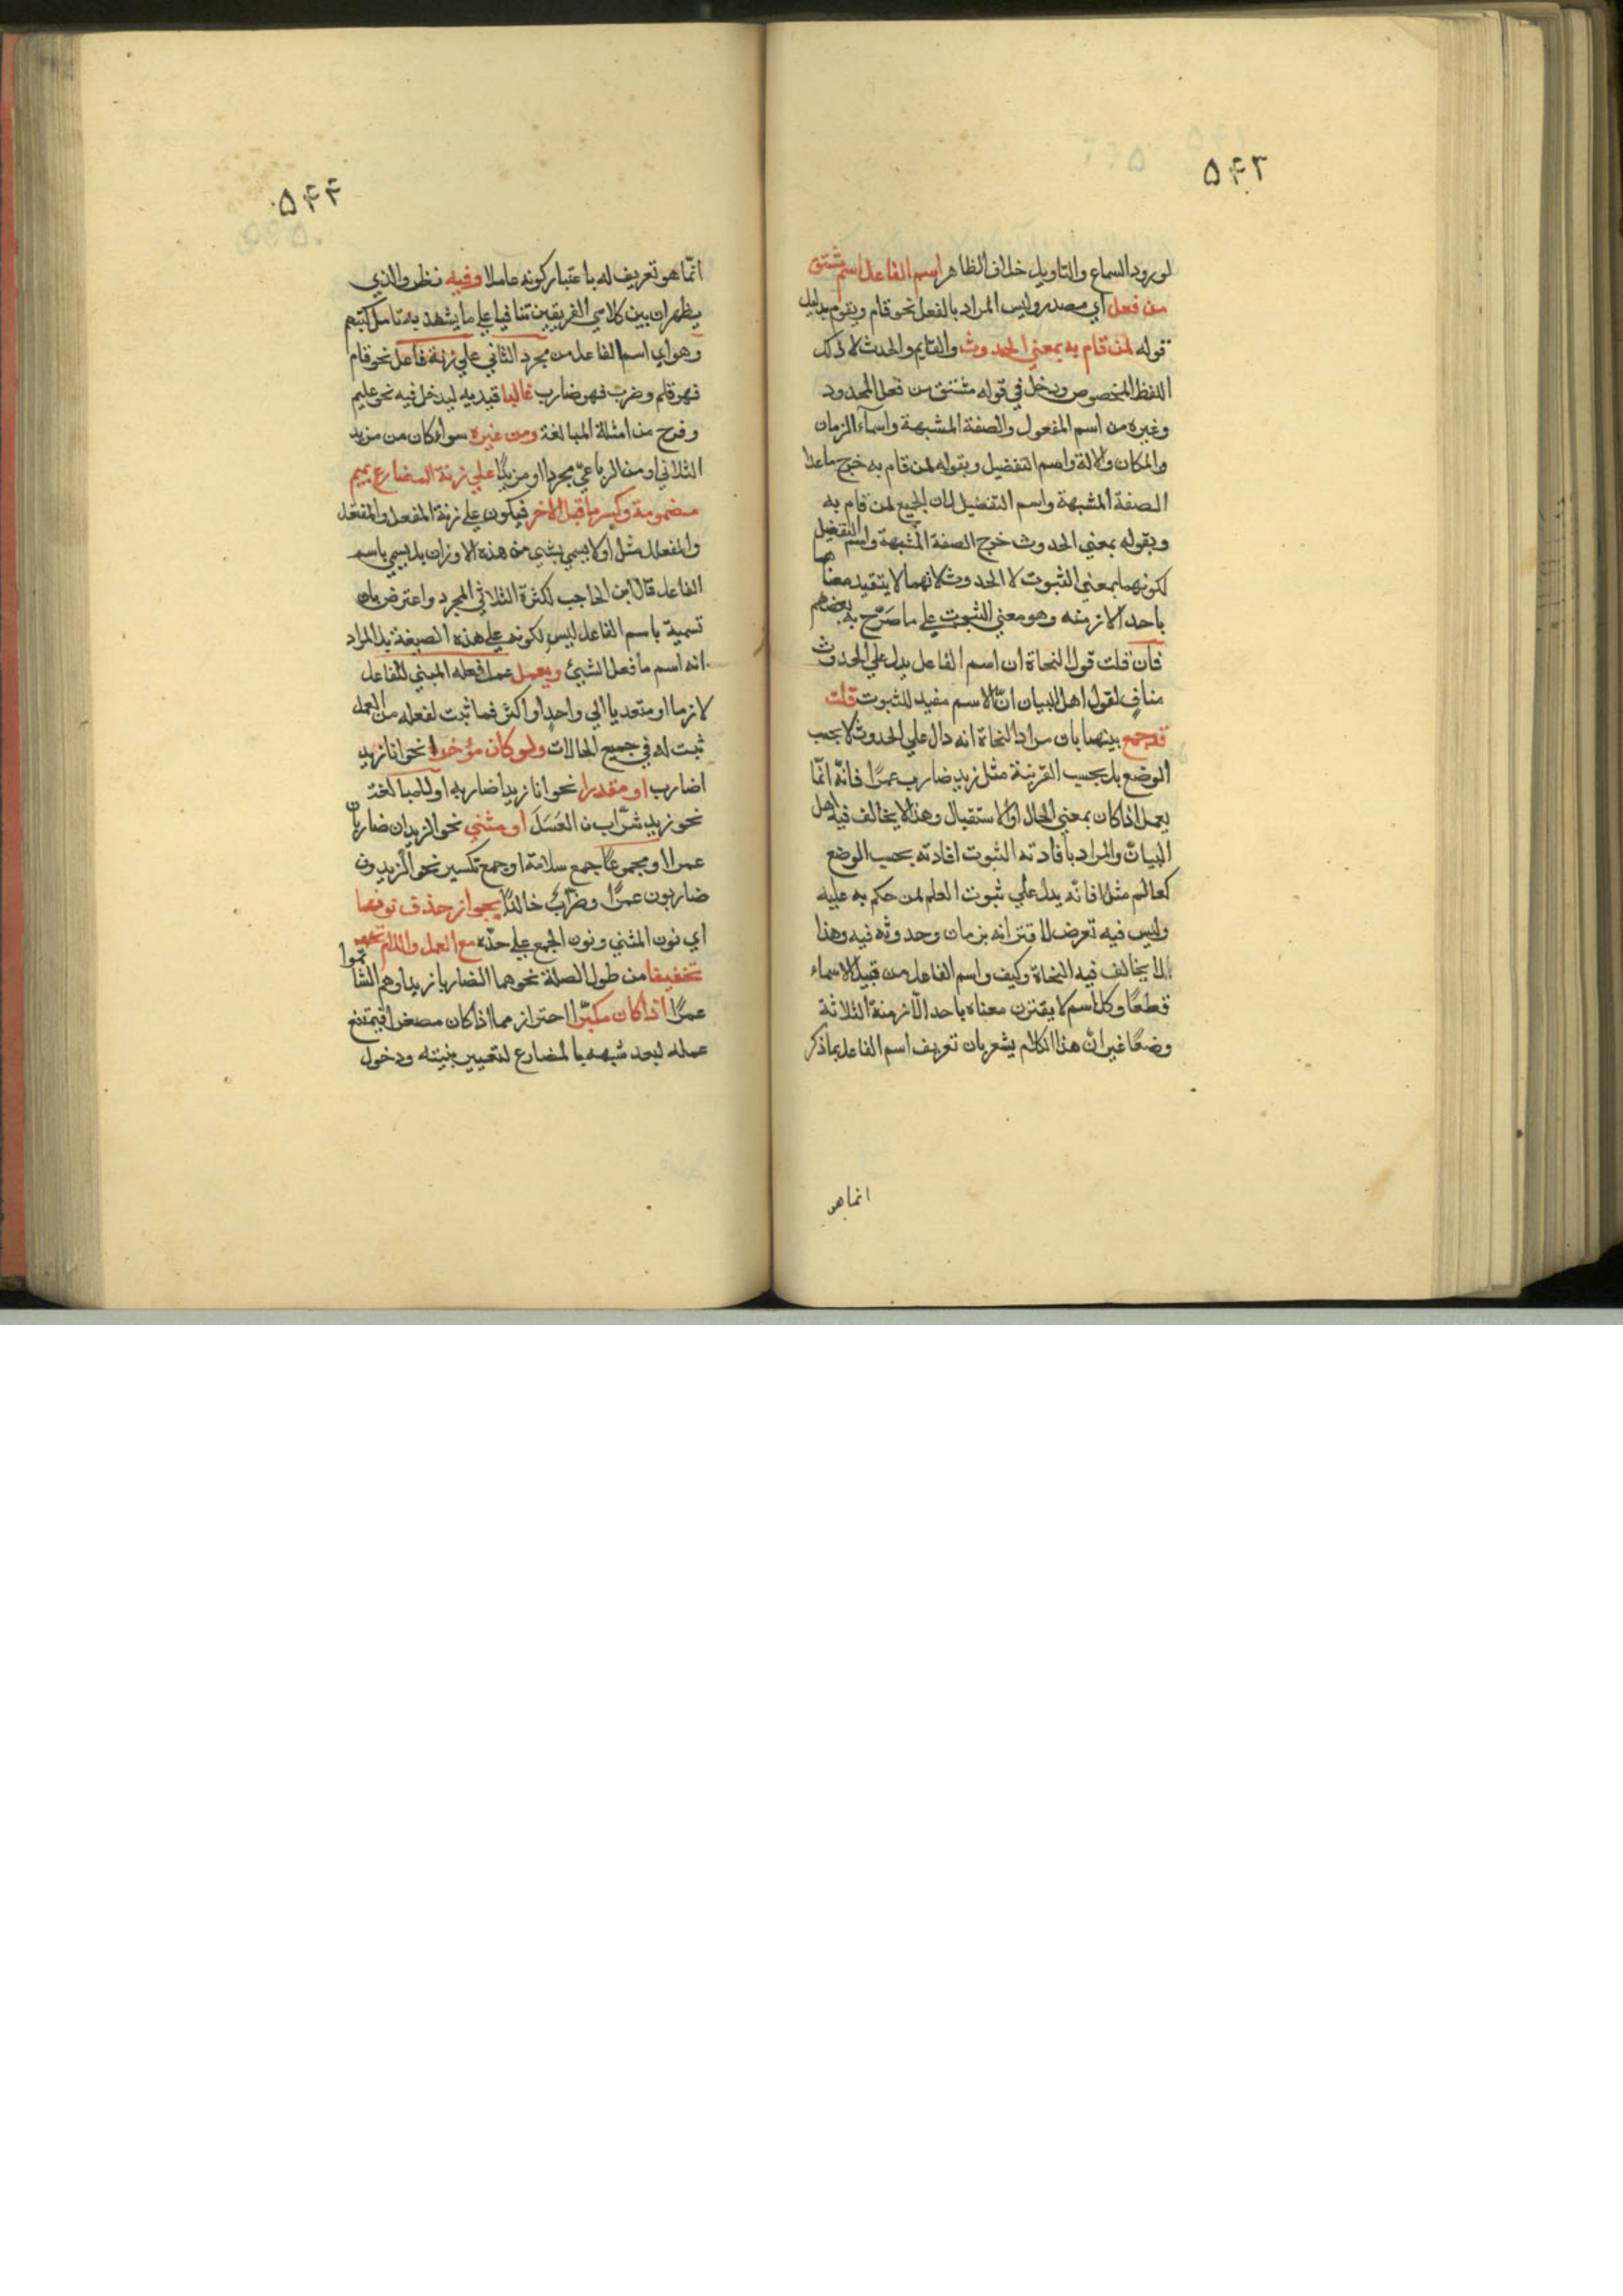 ۵۴۳
لورود السماع والتاويل خلاف الظاهر اسم الفاعل اسم مشتق
من فعل اي مصدر وليس المراد بالفعل نحو قام ويقوم بدليل
قوله لمن قام به بمعني الحدوث والقايم والحدث لا ذلك
اللفظ المخصوص ودخل في قوله مشتق من فعل المحدود
وغيره من اسم المفعول والصفة المشبهة واسمآء الزمان
والمكان والالة واسم التفضيل وبقوله لمن قام به خرج ماعدا
الصفة المشبهة واسم التفضيل لان الجميع لمن قام به
وبقوله بمعني الحدوث خرج الصفة المشبهة واسم التفضيل
لكونهما بمعني الثبوت لا الحدوث لانهما لا يتقيد معناهما
باحد الازمنه وهو معني الثبوت علي ما صرّح به بعضهم
فان قلت قول النحاة ان اسم الفاعل يدل علي الحدوث
منافٍ لقول اهل البيان انّ الاسم مفيد للثبوت قلت
قد جمع بينهما بان مراد النحاة انه دال علي الحدوث لا بحسب
الوضع بل بحسب القرينة مثل زيد ضارب عمرًا فانّه انّما
يعمل اذا كان بمعني الحال او الاستقبال وهذا لا يخالف فيه اهل
البيان والمراد بافادته الثبوت افادته بحسب الوضع
كعالم مثلا فانّه يدل علي ثبوت العلم لمن حكم به عليه
وليس فيه تعرض لاقترانه بزمان وحدوثه فيه وهذا
لا يخالف فيه النحاة وكيف واسم الفاعل من قبيل الاسماء
قطعًا وكل اسم لا يقترن معناه باحد الازمنة الثلاثة
وضعًا غير انّ هذا الكلام يشعر بان تعريف اسم الفاعل بما ذكر
انما هو
۵۴۴
انّما هو تعريف له باعتبار كونه عاملا وفيه نظر والذي
يظهر ان بين كلامي الفريقين تنافيا علي ما يشهد به تامل كتبهم
وهو اي اسم الفاعل من مجرد الثلاثي علي زنة فاعل نحو قام
فهو قايم وضرب فهو ضارب غالبا قيد به ليدخل فيه نحو عليم
وفرح من امثلة المبالغة ومن غيره سواء كان من مزيد
الثلاثي او من الرباعيّ مجردا او مزيدًا علي زنة المضارع بميم
مضمومة وكسر ما قبل الاخر فيكون علي زنة المفعل والمفتعل
والمفعلل مثلا ولا يسمي بشيء من هذه الاوزان بل يسمي باسم
الفاعل قال ابن الحاجب لكثرة الثلاثي المجرد واعترض بان
تسمية باسم الفاعل ليس لكونه علي هذه الصيغة بل المراد
انه اسم ما فعل الشيئ ويعمل عمل فعله المبني للفاعل
لازما او متعديا الي واحد او اكثر فما ثبت لفعله من العمل
ثبت له في جميع الحالات ولو كان مؤخرا نحو انا زيد
اضارب او مقدرا نحو انا زيدا ضاربه او للمبالغة
نحو زيد شرّاب ن العَسَلَ او مثني نحو الزيدان ضاربان
عمرا او مجموعًا جمع سلامة او جمع تكسير نحو الزيدون
ضاربون عمرًا وضرّاب خالدًا يجواز حذف نونهما
اي نون المثني ونون الجمع علي حدّه مع العمل واللام
تخفيفا من طول الصلة نحو هما الضاربا زيدا وهم الشاتموا
عمرًا اذا كان مكبّرا احتراز مما اذا كان مصغرا فيمتنع
عمله لبعد شبهه بالمضارع لتغيير بنيته ودخول